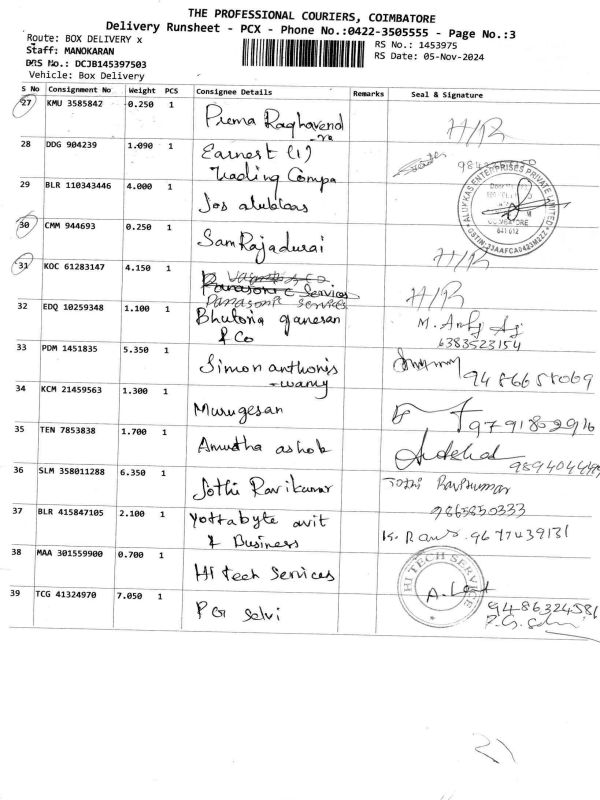 THE PROFESSIONAL COURIERS, COIMBATORE
Delivery Runsheet - PCX - Phone No.:0422-3505555 - Page No.:3
Route: BOX DELIVERY x
Staff: MANOKARAN
DRS No.: DCJB145397503
Vehicle: Box Delivery
RS No.: 1453975
RS Date: 05-Nov-2024
S No Consignment No Weight PCS Consignee Details Remarks Seal & Signature
27 KMU 3585842 0.250 1 Prema Raghavend H/R
-ra
28 DDG 904239 1.090 1 Earnest (1)
Trading Compa
29 BLR 110343446 4.000 1 Jos alukkas
30 CMM 944693 0.250 1 Sam Rajadurai H/R
31 KOC 61283147 4.150 1 Panasonic Services H/R
Panasonic Services
32 EDQ 10259348 1.100 1 Bhutoria ganesan M.
& Co 6383523154
33 PDM 1451835 5.350 1 Simon anthonis 9486658069
-wamy
34 KCM 21459563 1.300 1 Murugesan 9791802916
35 TEN 7853838 1.700 1 Amudha ashok
36 SLM 358011288 6.350 1 Jothi Ravikumar Jothi Ravikumar
9865850333
37 BLR 415847105 2.100 1 Yottabyte avit K. 9677439131
& Business
38 MAA 301559900 0.700 1 HI Tech Services HI TECH SERVICE
39 TCG 41324970 7.050 1 P G Selvi 9486324581
P.G. Selvi